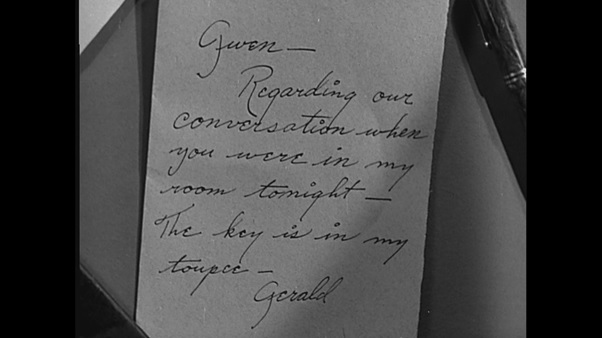 Gwen —
Regarding our
conversation when
you were in my
room tonight —
The key is in my
toupee —
Gerald